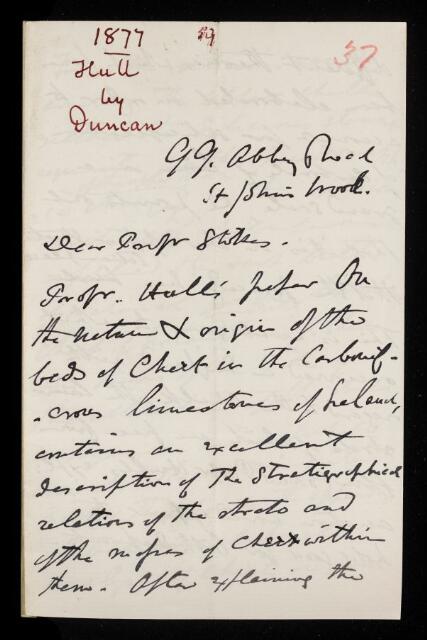 1877
Hull
by
Duncan
37
99. Abbey Road
St Johns Wood.
Dear Profr Stokes.
Profr. Hull's paper On
the nature & origin of the
beds of Chert in the Carbonif-
-erous limestones of Ireland,
contains an excellent
description of the Stratigraphical
relations of the strata and
of the masses of Chert within
them. After explaining the